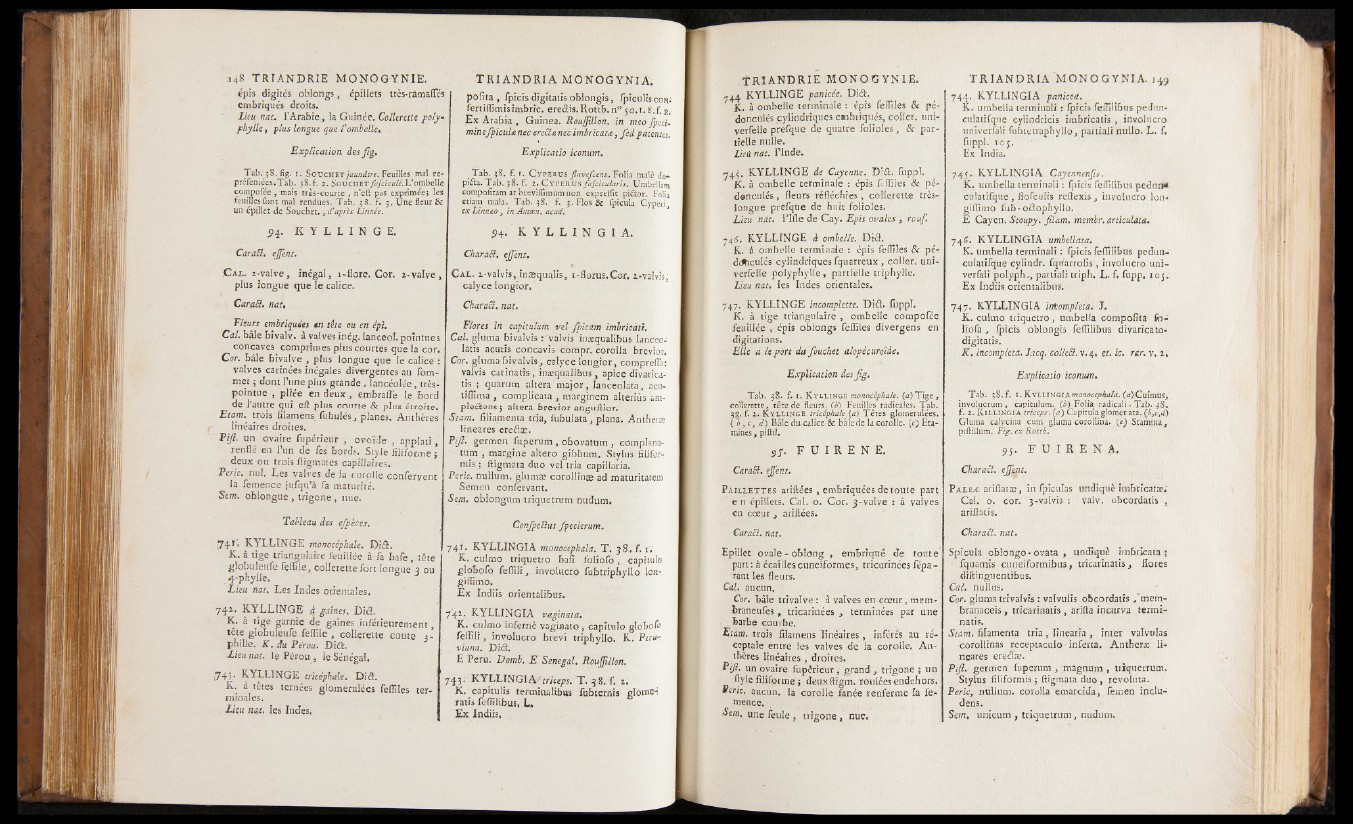 148 TRIANDRIE MONOGYNIE.
épis digités oblongs, épillets très-ramassés
embriqués droits.
Lieu nat. l'Arabie, la Guinée. Collerette poly-
phylle, plus longue que l'ombelle.
Explication des fig.
Tab. 38. fig. 1. SOUCHET jaundtre. Feuilles mal re-
présentées. Tab. 38. f. 2. SOUCHET fasciculé. L'ombelle
composée, mais très-courte, n'est pas exprimée; les
feuilles sont mal rendues. Tab. 38. f. 3. Une fleur &
un épillet de Souchet, d'après Linnée.
94. KYLLINGE.
Caract. essent.
CAL. 2-valve, inégal, 1-flore. Cor. 2-valve,
plus longue que le calice.
Caract. nat.
Fleurs embriquées en tête ou en épi.
Cal. bâle bivalv. à valves inég. lanceol. pointues
concaves comprimes plus courtes que la cor.
Cor. bâle bivalve, plus longue que le calice :
valves carinées inégales divergentes au som-
met ; dont l'une plus grande, lancéolée, très-
pointue, pliée en deux, embrasse le bord
de l'autre qui est plus courte & plus étroite.
Etam. trois filamens subulés, planes. Anthères
linéaires droites.
Pist. un ovaire supérieur, ovoïde, applati,
renflé en l'un de ses bords. Style filiforme ;
deux ou trois stigmates capillaires.
Peric. nul. Les valves de la corolle conservent
la semence jusqu'à sa maturité.
Sem. oblongue, trigone, nue.
Tableau des espèces.
741. KYLLINGE monocéphale. Dict.
K. à tige triangulaire feuillée à sa base, tête
globuleuse sessile, collerette fort longue 3 ou
4-phylle.
Lieu nat. Les Indes orientales.
742. KYLLINGE à gaînes. Dict.
K. à tige garnie de gaines inférieurement,
tête globuleuse sessile, collerette coute 3-
phille. K. du Pérou. Dict.
Lieu nat. le Pérou, le Sénégal.
743. KYLLINGE tricéphale. Dict.
K. à têtes ternées glomerulées sessiles ter-
minales.
Lieu nat. les Indes.
TRIANDRIA MONOGYNIA.
posita, spicis digitatis oblongis, spiculis con-
fertissimis imbric. erectis. Rottb. n° 50. t. 8. f. 2.
Ex Arabia, Guinea. Roussillon. in meo speci-
mine spiculæ nec erectæ nec imbricatæ, sed patentes.
Explicatio iconum.
Tab. 38. f. 1. CYPERUS flavescens. Folia malè de-
picta. Tab. 38. f. 2. CYPERUS fascicularis. Umbellam
compositam at brevissimam non expressit pictor. Folia
etiam mala. Tab. 38. f. 3. Flos & spicula Cyperi,
ex Linneo, in Amœn. acad.
94. KYLLINGIA.
Charact. essent.
CAL. 2-valvis, inæqualis, 1-florus. Cor. 2-valvis,
calyce longior.
Charact. nat.
Flores in capitulum vel spicam imbricati.
Cal. gluma bivalvis : valvis inæqualibus lanceo-
latis acutis concavis compr. corolla brevior.
Cor. gluma bivalvis, calyce longior, compressa:
valvis carinatis, inæqualibus, apice divarica-
tis ; quarum altera major, lanceolata, acu-
tissima, complicata, marginem alterius am-
plectens ; altera brevior angustior.
Stam. filamenta tria, subulata, plana. Antheræ
lineares erectæ.
Pist. germen superum, obovatum, complana-
tum, margine altero gibbum. Stylus filifor-
mis ; stigmata duo vel tria capillaria.
Peric. nullum. glumæ corollinæ ad maturitatem
Semen conservant.
Sem. oblongum triquetrum nudum.
Conspectus specierum.
741. KYLLINGIA monocephala. T. 38. f. 1.
K. culmo triquetro basi folioso, capitulo
globoso sessili, involucro subtriphyllo lon-
gissimo.
Ex Indiis orientalibus.
742. KYLLINGIA vaginata.
K. culmo infernè vaginato, capitulo globoso
sessili, involucro brevi triphyllo. K. Peru-
viana. Dict.
E Peru. Domb. E Senegal. Roussillon.
743. KYLLINGIA triceps. T. 38. f. 2.
K. capitulis terminalibus subternis glome-
ratis sessilibus. L.
Ex Indiis.
TRIANDRIE MONOGYNIE.
744 KYLLINGE panicée. Dict.
K. à ombelle terminale : épis sessiles & pé-
donculés cylindriques embriqués, coller. uni-
verselle presque de quatre folioles, & par-
tielle nulle.
Lieu nat. l'Inde.
745. KYLLINGE de Cayenne. Dict. suppl.
K. à ombelle terminale : épis sessiles & pé-
donculés, fleurs réfléchies, collerette très-
longue presque de huit folioles.
Lieu nat. l'Isle de Cay. Epis ovales, rouss.
746. KYLLINGE à ombelle. Dict.
K. à ombelle terminale : épis sessiles & pé-
donculés cylindriques squarreux, coller. uni-
verselle polyphylle, partielle triphylle.
Lieu nat. les Indes orientales.
747. KYLLINGE incomplette. Dict. suppl.
K. à tige triangulaire, ombelle composée
feuillée, épis oblongs sessiles divergens en
digitations.
Elle a le port du souchet alopécuroïde.
Explication des fig.
Tab. 38. f. 1. KYLLINGE monocéphale. (a) Tige,
collerette, tête de fleurs. (b) Feuilles radicales. Tab.
38. f. 2. KYLLINGE tricéphale (a) Têtes glomerulées.
(b, c, d) Bâle du calice & bâle de la corolle. (e) Eta-
mines, pistil.
95. FUIRENE.
Caract. essent.
PAILLETTES aristées, embriquées de toute part
en épillets. Cal. 0. Cor. 3-valve : à valves
en cœur, aristées.
Caract. nat.
Epillet ovale-oblong, embriqué de toute
part : à écailles cuneiformes, tricarinées sépa-
rant les fleurs.
Cal. aucun.
Cor. bâle trivalve : à valves en cœur, mem-
braneuses, tricarinées, terminées par une
barbe courbe.
Etam. trois filamens linéaires, insérés au ré-
ceptale entre les valves de la corolle. An-
thères linéaires, droites.
Pist. un ovaire supérieur, grand, trigone ; un
style filiforme ; deux stigm. roulées en dehors.
Peric. aucun. la corolle fanée renferme la se-
mence.
Sem. une seule, trigone, nue.
TRIANDRIA MONOGYNIA. 149
744. KYLLINGIA panicea.
K. umbella terminali : spicis sessilibus pedun-
culatisque cylindricis imbricatis, involucro
universali subtetraphyllo, partiali nullo. L. f.
suppl. 105.
Ex India.
745. KYLLINGIA Cayennensis.
K. umbella terminali : spicis sessilibus pedun-
culatisque, flosculis reflexis, involucro lon-
gissimo sub-octophyllo.
E Cayen. Stoupy. filam. membr. articulata.
746. KYLLINGIA umbellata.
K. umbella terminali : spicis sessilibus pedun-
culatisque cylindr. squarrosis, involucro uni-
versali polyph., partiali triph. L. f. supp. 105.
Ex Indiis orientalibus.
747. KYLLINGIA incompleta. J.
K. culmo triquetro, umbella composita fo-
liosa, spicis oblongis sessilibus divaricato-
digitatis.
K. incompleta. Jacq. collect. v. 4. et. ic. rar. v. 2.
Explicatio iconum.
Tab. 38. f. 1. KYLLINGIA monocephala. (a) Culmus,
involucrum, capitulum. (b) Folia radicali. Tab. 38.
f. 2. KILLINGIA triceps. (a) Capitula glomerata. (b,c,d)
Gluma calycina cum gluma corollina. (e) Stamina,
pistillum. Fig. ex Rottb.
95. FUIRENA.
Charact. essent.
PALEÆ aristatæ, in spiculas undiquè imbricatæ.
Cal. 0. cor. 3-valvis : valv. obcordatis,
aristatis.
Charact. nat.
Spicula oblongo-ovata, undiquè imbricata ;
squamis cuneiformibus, tricarinatis, flores
distinguentibus.
Cal. nullus.
Cor. gluma trivalvis : valvulis obcordatis, mem-
branaceis, tricarinatis, arista incurva termi-
natis.
Stam. filamenta tria, linearia, inter valvulas
corollinas receptaculo inserta. Antheræ li-
neares erectæ.
Pist. germen superum, magnum, triquetrum.
Stylus filiformis ; stigmata duo, revoluta.
Peric. nullum. corolla emarcida, semen inclu-
dens.
Sem. unicum, triquetrum, nudum.